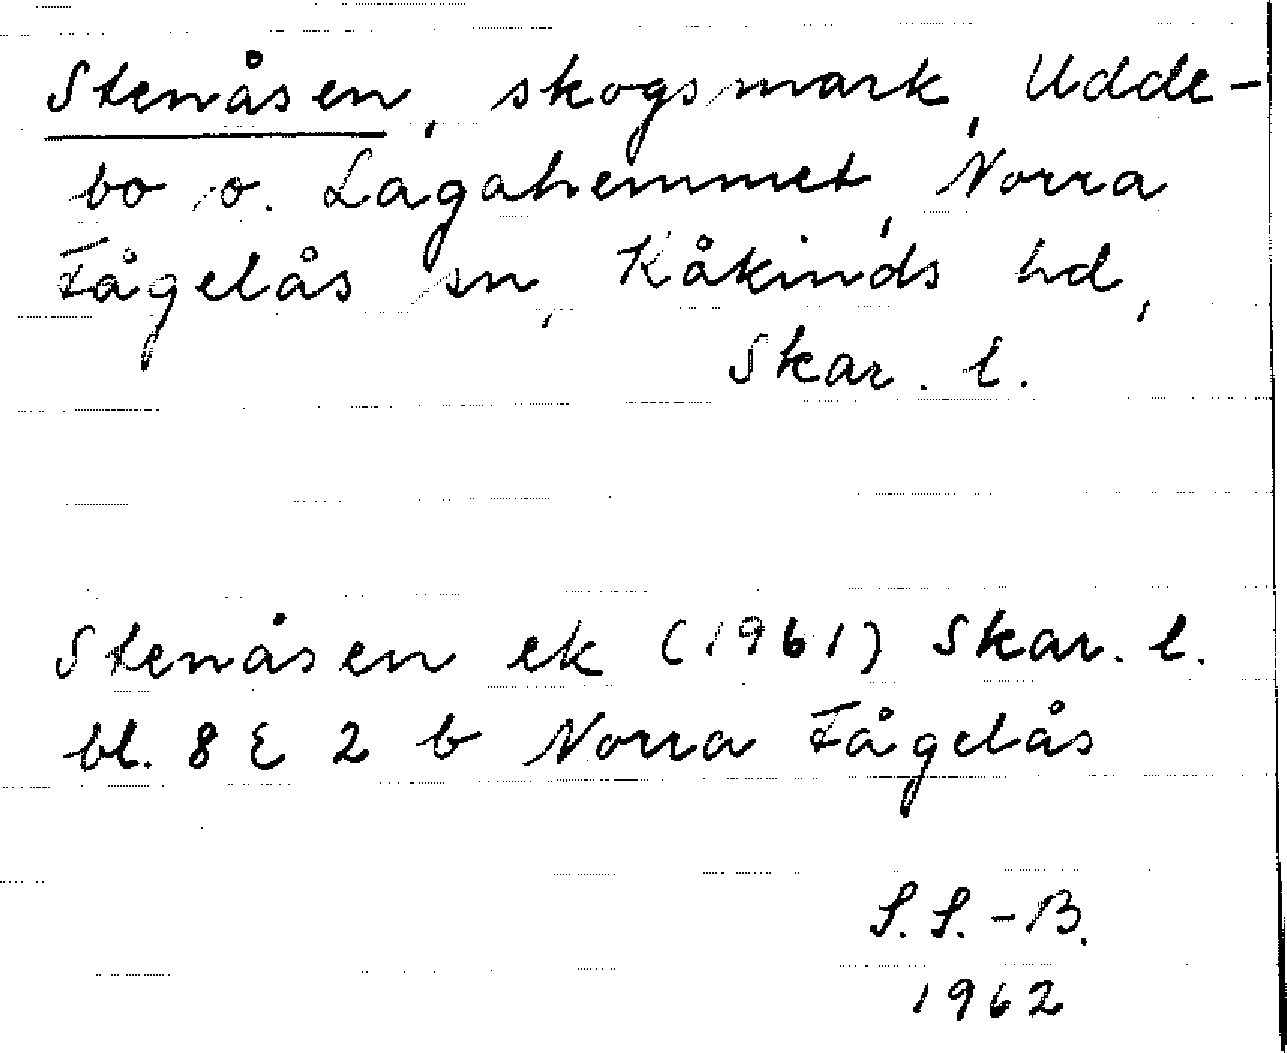 Stenåsen, skogsmark, Udde-
bo o. Lagahemmet, Norra
Fågelås sn, Kåkinds hd,
Skar. l.
Stenåsen ek (1961) Skar. l.
bl. 8 E 2 b Norra Fågelås
S. S.-B.
1962